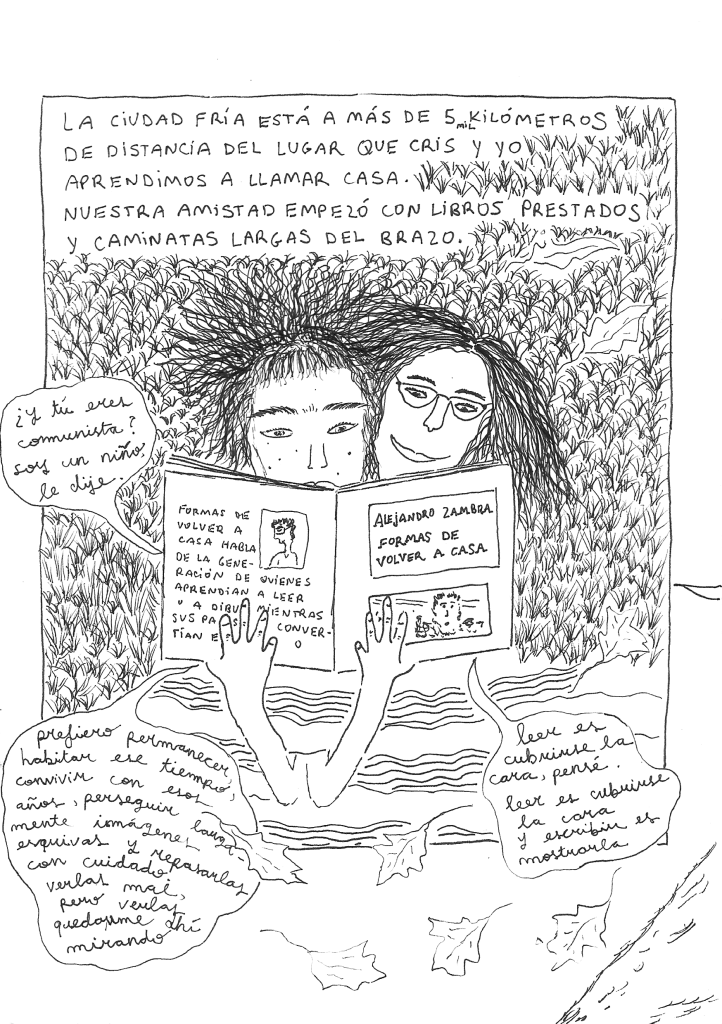 LA CIUDAD FRÍA ESTÁ A MÁS DE 5 MIL KILÓMETROS
DE DISTANCIA DEL LUGAR QUE CRIS Y YO
APRENDIMOS A LLAMAR CASA.
NUESTRA AMISTAD EMPEZÓ CON LIBROS PRESTADOS
Y CAMINATAS LARGAS DEL BRAZO.
¿Y tú eres
comunista?
soy un niño,
le dije.
FORMAS DE
VOLVER A
CASA HABLA
DE LA GENE-
RACIÓN DE QUIENES
APRENDIAN A LEER
O A DIBU MIENTRAS
SUS PA S CONVER-
TÍAN E O
ALEJANDRO ZAMBRA
FORMAS DE
VOLVER A CASA
prefiero permanecer,
habitar ese tiempo,
convivir con esos
años, perseguir larga-
mente imágenes
esquivas y repasarlas
con cuidado
verlas mal,
pero verlas,
quedarme ahí
mirando
leer es
cubrirse la
cara, pensé.
leer es cubrirse
la cara
y escribir es
mostrarla